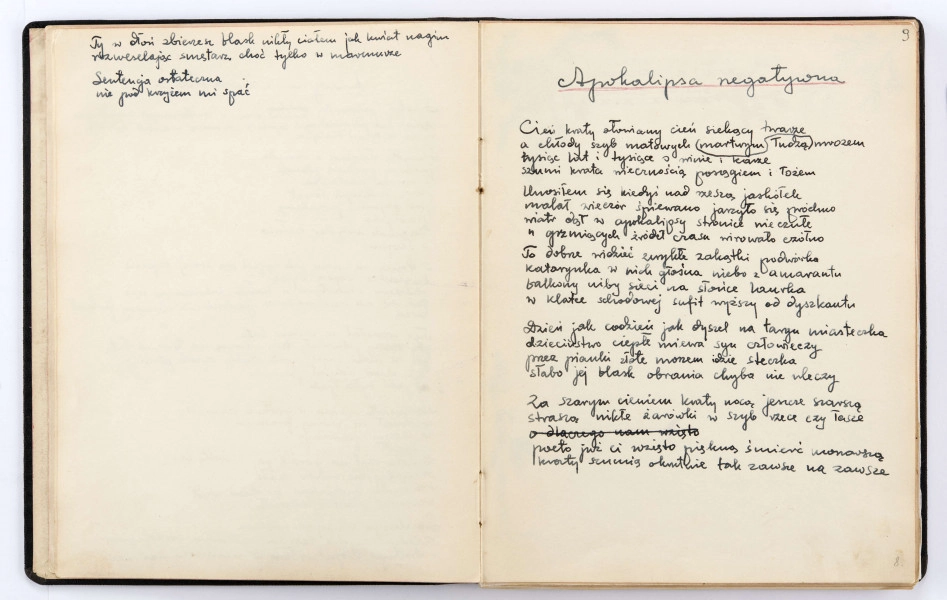 Ty w dłoń zbierzesz blask nikły ciałem jak kwiat nagim
rozweselając cmętarz choć tylko w marmurze
Sentencja ostateczna
nie pod krzyżem mi spać
9
Apokalipsa negatywna
Cień kraty ołowiany cień siekący twarze
a chłody szyb matowych (martwym) mrozem
tysiąc lat i tysiące o winie i karze
szumi krata wiecznością posągiem i łożem
Unosiłem się kiedyś nad rzeszą jaskółek
malał wieczór śpiewano jarzyło się próchno
wiatr dął w apokalipsy stronice nieczułe
u grzmiących źródeł czasu wirowało czółno
To dobrze widzieć zwykłe zakątki podwórka
katarynka w nich głośna niebo z amarantu
balkony niby sieci na słońce
w klatce schodowej sufit wyższy od dyszkantu
Dzień jak codzień jak dyszel na targu miasteczka
dzieciństwo ciepłe miewa syn człowieczy
przez pianki złote morzem idzie steczka
słabo jej blask obrania chyba nie uleczy
Za szarym cieniem kraty nocą jeszcze szarszą
straszą nikłe żarówki w szyb rzece czy łasce
o dlaczego nam wzięto
poeto już ci wzięto piękną śmierć monarszą
kraty szumią okrutnie tak zawsze na zawsze
8